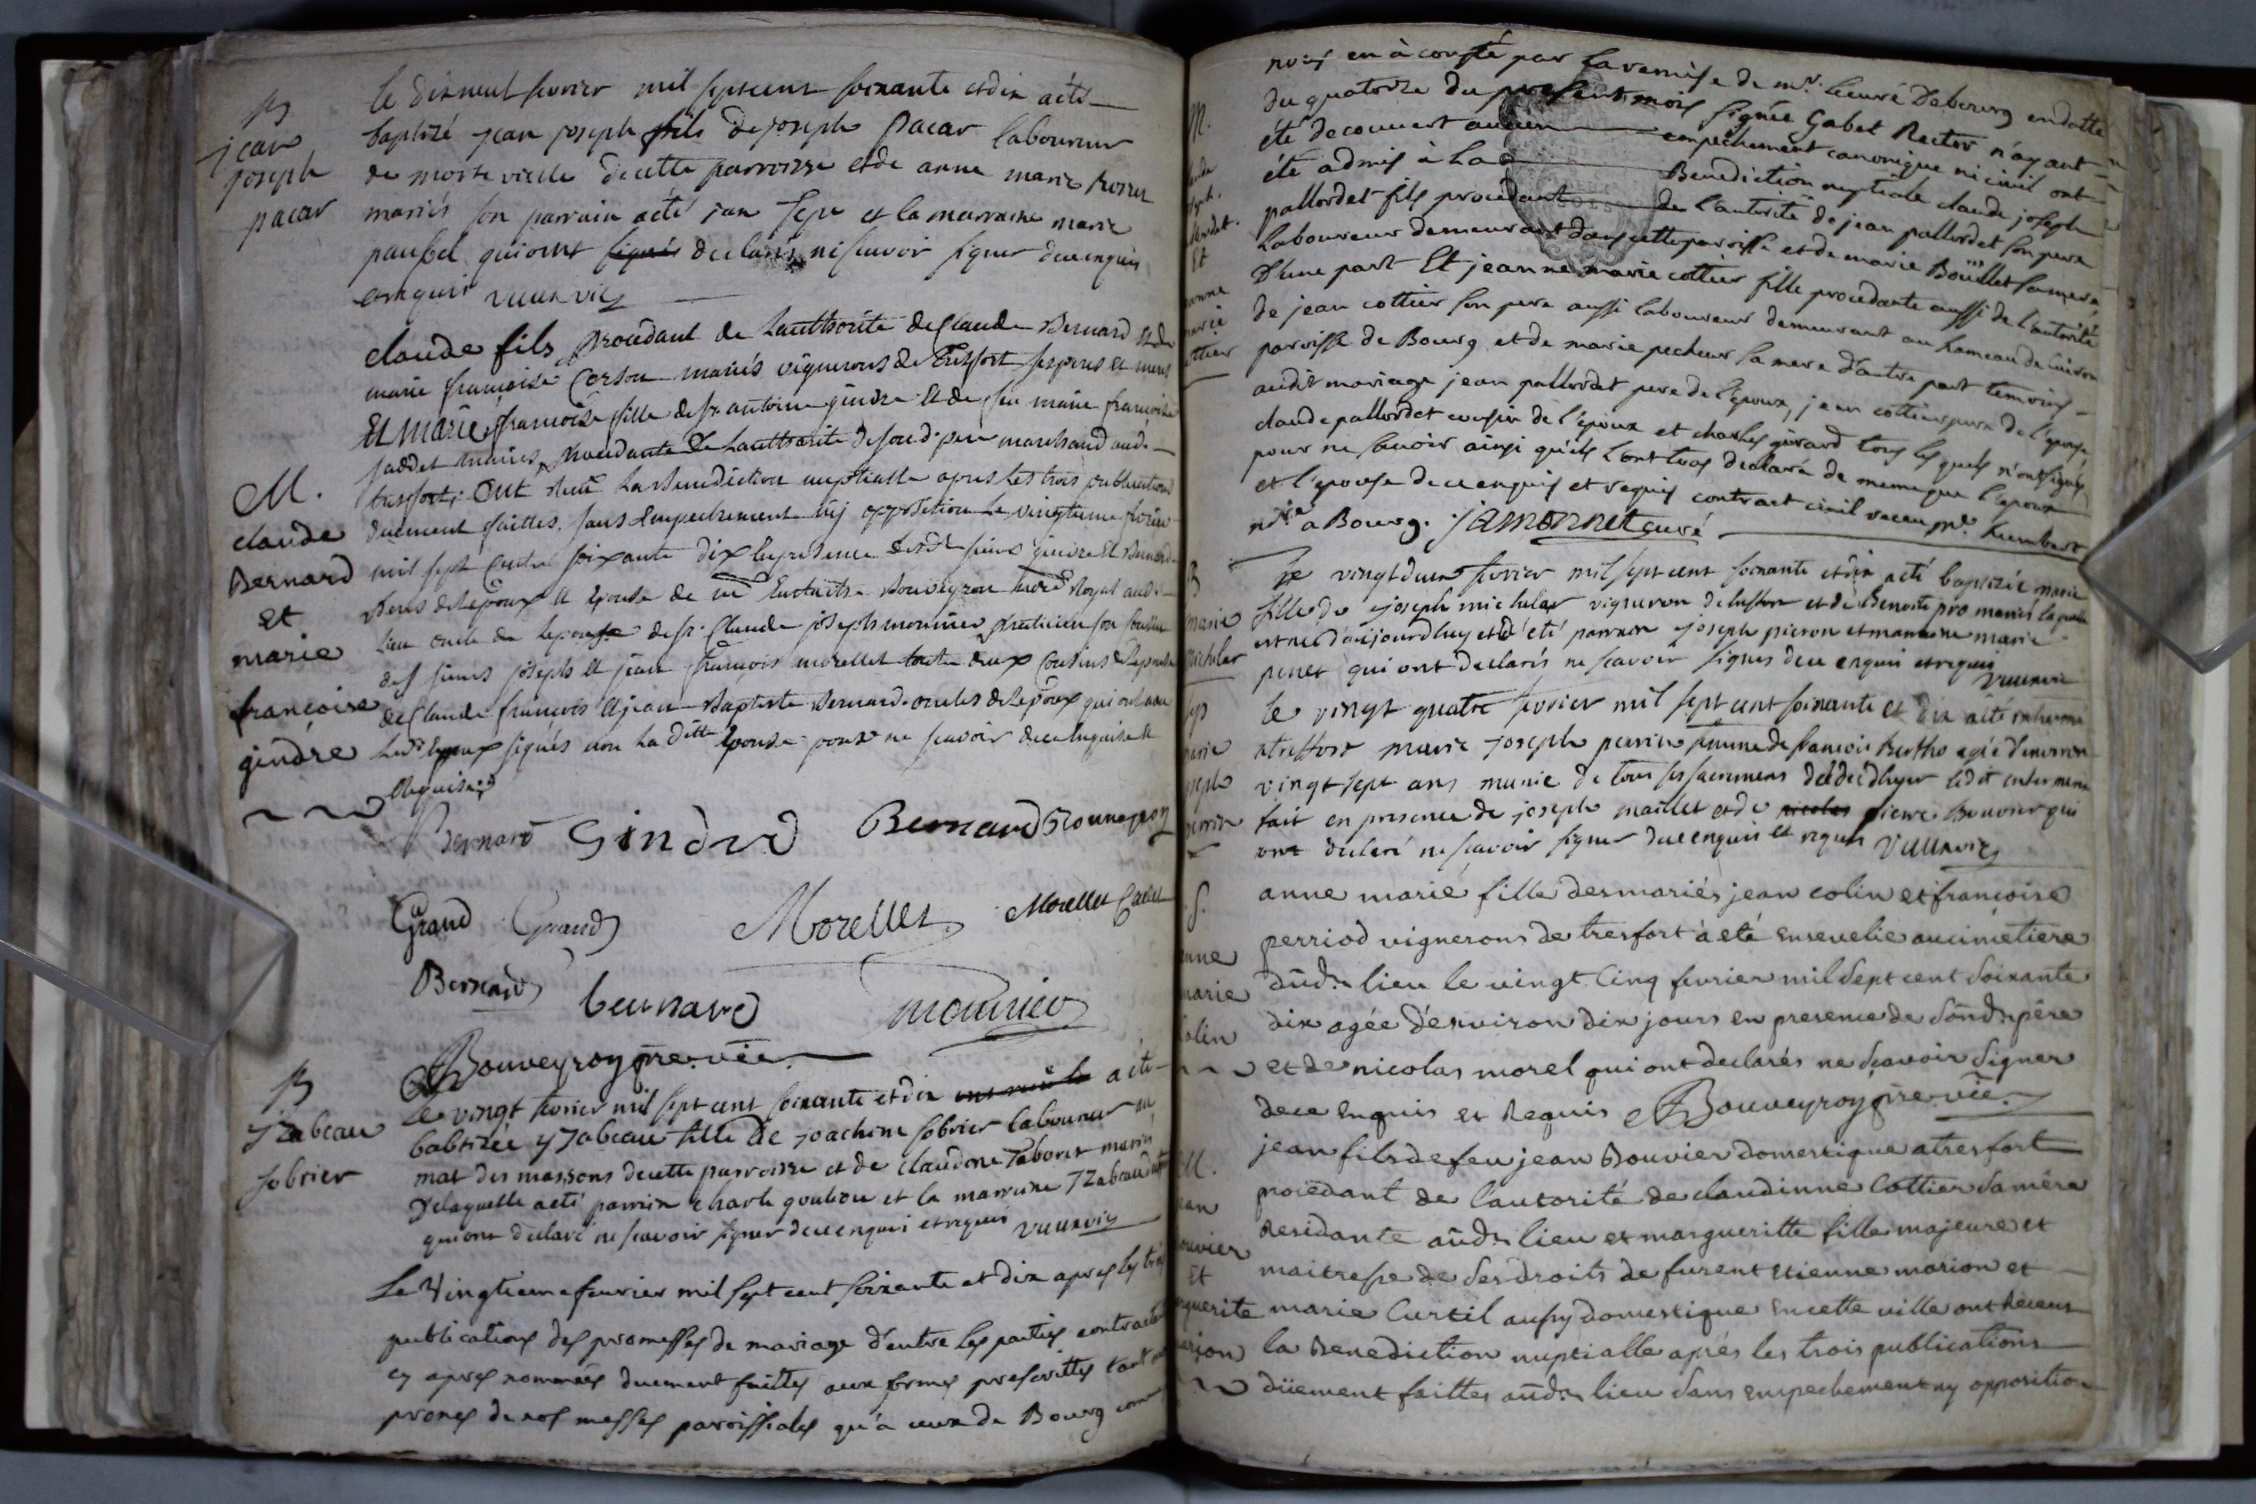 B
jean
joseph
pacar
le dixneuf fevrier mil septcent soixante et dix a été
baptizé jean joseph fils de joseph pacar laboureur
de morte vieille de cette parroisse et de anne marie
mariés son parrain a été jan et la marraine marie
qui ont signés declarés ne scavoir signer de ce enquis
et requis vuurvic
M.
claude
Bernard
et
marie
françoise
gindre
claude fils procédant de Lauthorité de Claude Bernard et de
marie françoise Cerson mariés vignerons de tresfort ses peres et meres
Et Marie françoise fille de sr. antoine gindre et de feu marie françoise
jaddet mariés, procedante de Lauthorité de son d. pere marchand aud.
tresfort; ont reçu La Benediction nuptialle apres Les trois publications
duement faittes, sans Empechement nij opposition Le vingtieme fevrier
mil sept Cents soixante dix En presence desdts sieurs gindre et Bernard
Peres de Lepoux et Epouse de Bouveyron Royal aud.
Lieu oncle de Lepouse de sr. Claude joseph mounier praticien son Cousin
des sieurs joseph et jean françois morellet tous deux Cousins de Lepouse
de Claude françois et jean Baptiste Bernard oncles de Lepoux qui ont avec
Led. Epoux signés non La ditte Epouse pour ne scavoir de ce Enquise et
Requise
Bernard Gindre Bernard Bouveyron
Grand Grand Morellet Morellet Cadet
Bernard bernard mounier
Bouveyron pre. vic.
B
yzabeau
sobrier
le vingt fevrier mil sept cent soixante et dix ont reçu la a été
babtizée yzabeau fille de joachim sobrier laboureur au
mat des massons de cette parroisse et de claudine taboret mariés
De laquelle a été parrain charle goubou et la marraine yzabeau
qui ont declaré ne scavoir signer de ce enquis et requis vuurvic
Le Vingtieme fevrier mil sept cent soixante et dix apres les trois
publications des promesses de mariage d'entre les parties contractantes
cy apres nommées duement faittes aux formes prescrittes tant aux
prones de nos messes paroissiales qu'a ceux de Bourg comme
M.
Et
nous en à consté par La remise de mr. le curé De bourg en datte
du quatorze du present mois signée Gabet Rector n'ayant
été decouvert aucun empechement canonique ni civil ont
été admis à La Benediction nuptiale claude joseph
pallordet fils procedant de l'autorité de jean pallordet son pere
Laboureur demeurant dans cette paroisse et de marie Boüillet sa mere
D'une part Et jeanne marie cottier fille procedante aussi de l'autorité
de jean cottier son pere aussi laboureur demeurant au hameau de
paroisse de Bourg et de marie pecheur sa mere d'autre part temoins
audit mariage jean pallordet pere de l'epoux, jean cottier pere de l'epouse
claude pallordet cousin de l'epoux et charles girard tous lesquels n'ont signés
pour ne scavoir ainsi qu'ils L'ont tous declaré de meme que l'epoux
et l'epouse de ce enquis et requis contract civil receu me. humbert
nore. a Bourg. jamonnet curé
B
marie
michelar
Le vingt deux fevrier mil sept cent soixante et dix a été baptizée marie
fille de joseph michelar vigneron de et de Benoite pro mariés laquelle
est née d'aujourd'huy et a été parrain joseph picron et marraine marie
penet qui ont declarés ne scavoir signer de ce enquis et requis
vuurvic
sep
marie
joseph
perrin
Le vingt quatre fevrier mil sept cent soixante et dix a été inhumé
a treffort marie joseph perrin femme de francois Bertho agée d'environ
vingt sept ans munie de tous ses sacremens decedée d'hyer ledit enterrement
fait en presence de joseph maillet et de nicolas pierre Bouvier qui
ont declaré ne scavoir signer de ce enquis et requis vuurvic
S.
anne
marie
colin
anne marie fille des mariés jean colin et françoise
perriod vignerons de tresfort à eté ensevelie au cimetiere
dud. lieu le vingt Cinq fevrier mil sept cent soixante
dix agée d'environ dix jours en presence de sond. pére
et de nicolas morel qui ont declarés ne sçavoir signer
de ce Enquis et Requis Bouveyron pre. vic.
M.
jean
bouvier
Et
marguerite
marion
jean fils de feu jean Bouvier domestique a tresfort
procédant de l'autorité de claudinne Cottier sa mére
Residante aud. lieu et margueritte fille majeure et
maitresse de ses droits de furent Etienne marion et
marie Curtil aussy domestique en cette ville ont Receus
la Benediction nuptialle aprés les trois publications
düement faittes aud. lieu sans empechement ny opposition